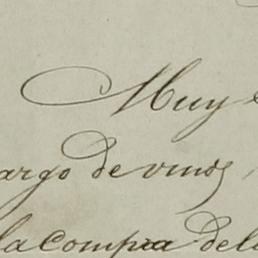 Muy
argo de vinos,
la compra del